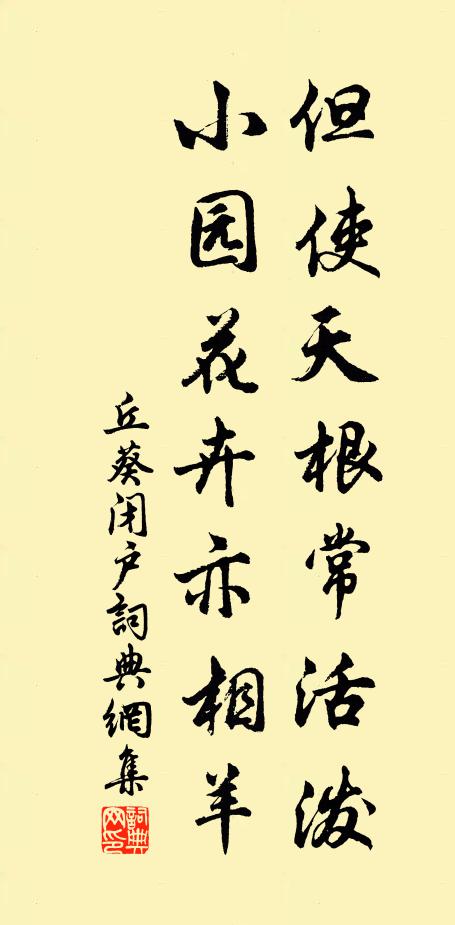 但使天根常活泼
小园花卉亦相羊
丘葵闭户詞典網集
詞典網印